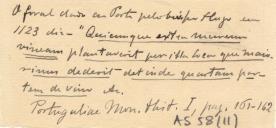 O foral dado ao Porto pelo bispo Hugo em
1123 diz - "Quicumque extra murum
vineam plantaverit per illa loca que mais
det inde quartam par
tem de vino &.
Portugaliae Mon. Hist. I, pag. 161-162
AS 58 (11)